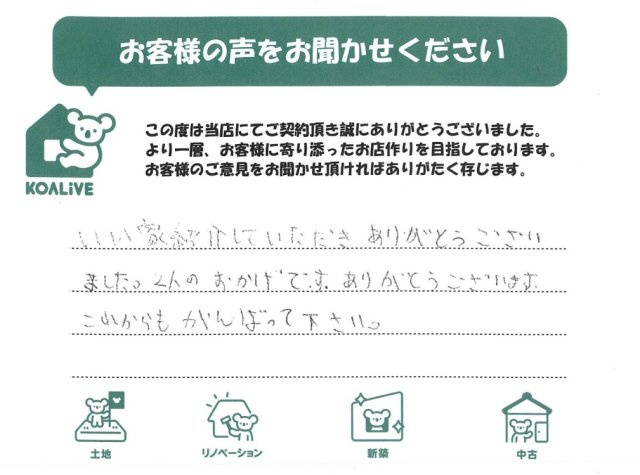 お客様の声をお聞かせください
この度は当店にてご契約頂き誠にありがとうございました。
より一層、お客様に寄り添ったお店作りを目指しております。
お客様のご意見をお聞かせ頂ければありがたく存じます。
KOALiVE
いい家紹介していただき ありがとうござい
ました。2人の おかげです。ありがとうございます。
これからも がんばって下さい。
土地 リノベーション 新築 中古